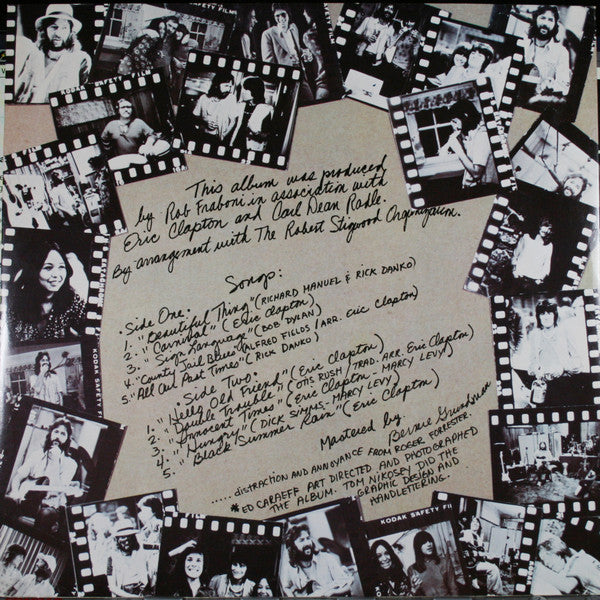 This album was produced
by Rob Fraboni in association with
Eric Clapton and Carl Dean Radle.
By arrangement with The Robert Stigwood Organization.
Songs:
• Side One •
1. "Beautiful Thing" (RICHARD MANUEL & RICK DANKO)
2. "Carnival" (Eric Clapton)
3. "Sign Language" (BOB DYLAN)
4. "County Jail Blues" (ALFRED FIELDS / ARR. Eric Clapton)
5. "All Our Past Times" (RICK DANKO)
• Side Two •
1. "Hello Old Friend" (Eric Clapton)
2. "Double Trouble" (OTIS RUSH / TRAD. ARR. Eric Clapton)
3. "Innocent Times" (Eric Clapton - MARCY LEVY)
4. "Hungry" (DICK SIMMS - MARCY LEVY)
5. "Black Summer Rain" (Eric Clapton)
Mastered by
Bernie Grundman
..... DISTRACTION AND ANNOYANCE FROM ROGER FORRESTER.
*ED CARAEFF ART DIRECTED AND PHOTOGRAPHED
THE ALBUM. TOM NIKOSEY DID THE
GRAPHIC DESIGN AND
HANDLETTERING.
KODAK SAFETY FILM
KODAK SAFETY
KODAK SAFETY FIL
SAFETY FILM